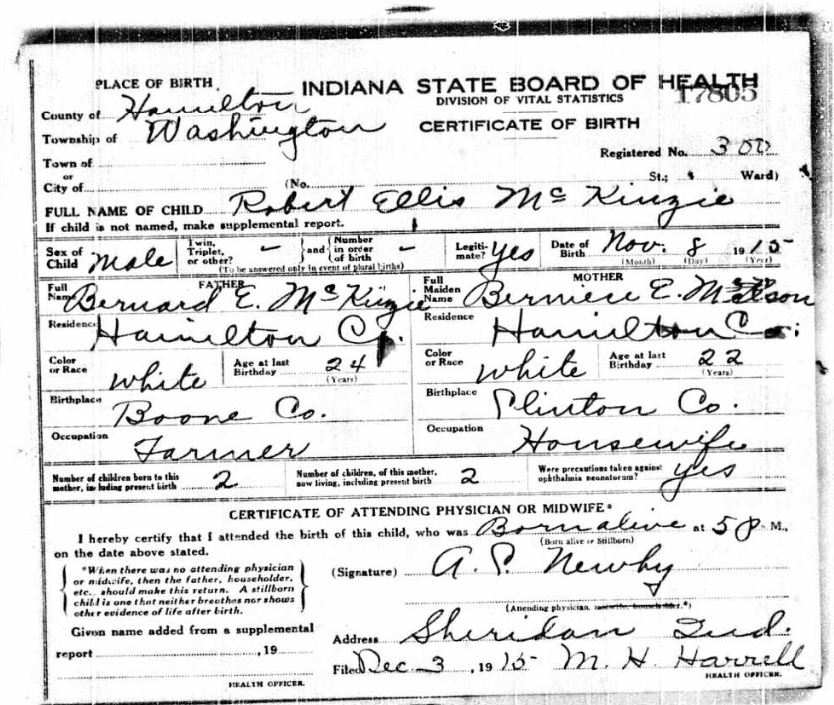 PLACE OF BIRTH
INDIANA STATE BOARD OF HEALTH
17805
DIVISION OF VITAL STATISTICS
CERTIFICATE OF BIRTH
County of Hamilton
Township of Washington
Town of
or
City of
Registered No. 300
(No. St.; Ward)
FULL NAME OF CHILD Robert Ellis Mc Kinzie
If child is not named, make supplemental report.
Sex of Child Male
Twin, Triplet, or other? –
and
Number in order of birth –
(To be answered only in event of plural births)
Legiti-mate? Yes
Date of Birth Nov. 8 1915
(Month) (Day) (Year)
FATHER
Full Name Bernard E. Mc Kinzie
Residence Hamilton Co.
Color or Race White
Age at last Birthday 24
(Years)
Birthplace Boone Co.
Occupation Farmer
MOTHER
Full Maiden Name Berniece E.
Residence Hamilton Co.
Color or Race White
Age at last Birthday 22
(Years)
Birthplace Clinton Co.
Occupation Housewife
Number of children born to this mother, including present birth 2
Number of children, of this mother, now living, including present birth 2
Were precautions taken against ophthalmia neonatorum? yes
CERTIFICATE OF ATTENDING PHYSICIAN OR MIDWIFE*
I hereby certify that I attended the birth of this child, who was Born alive at 5 P. M.,
(Born alive or Stillborn)
on the date above stated.
*When there was no attending physician
or midwife, then the father, householder,
etc., should make this return. A stillborn
child is one that neither breathes nor shows
other evidence of life after birth.
(Signature) A. P. Newby
(Attending physician, midwife, householder.*)
Given name added from a supplemental
report , 19
HEALTH OFFICER.
Address Sheridan Ind.
Filed Dec 3 , 1915 M. H. Harrell
HEALTH OFFICER.